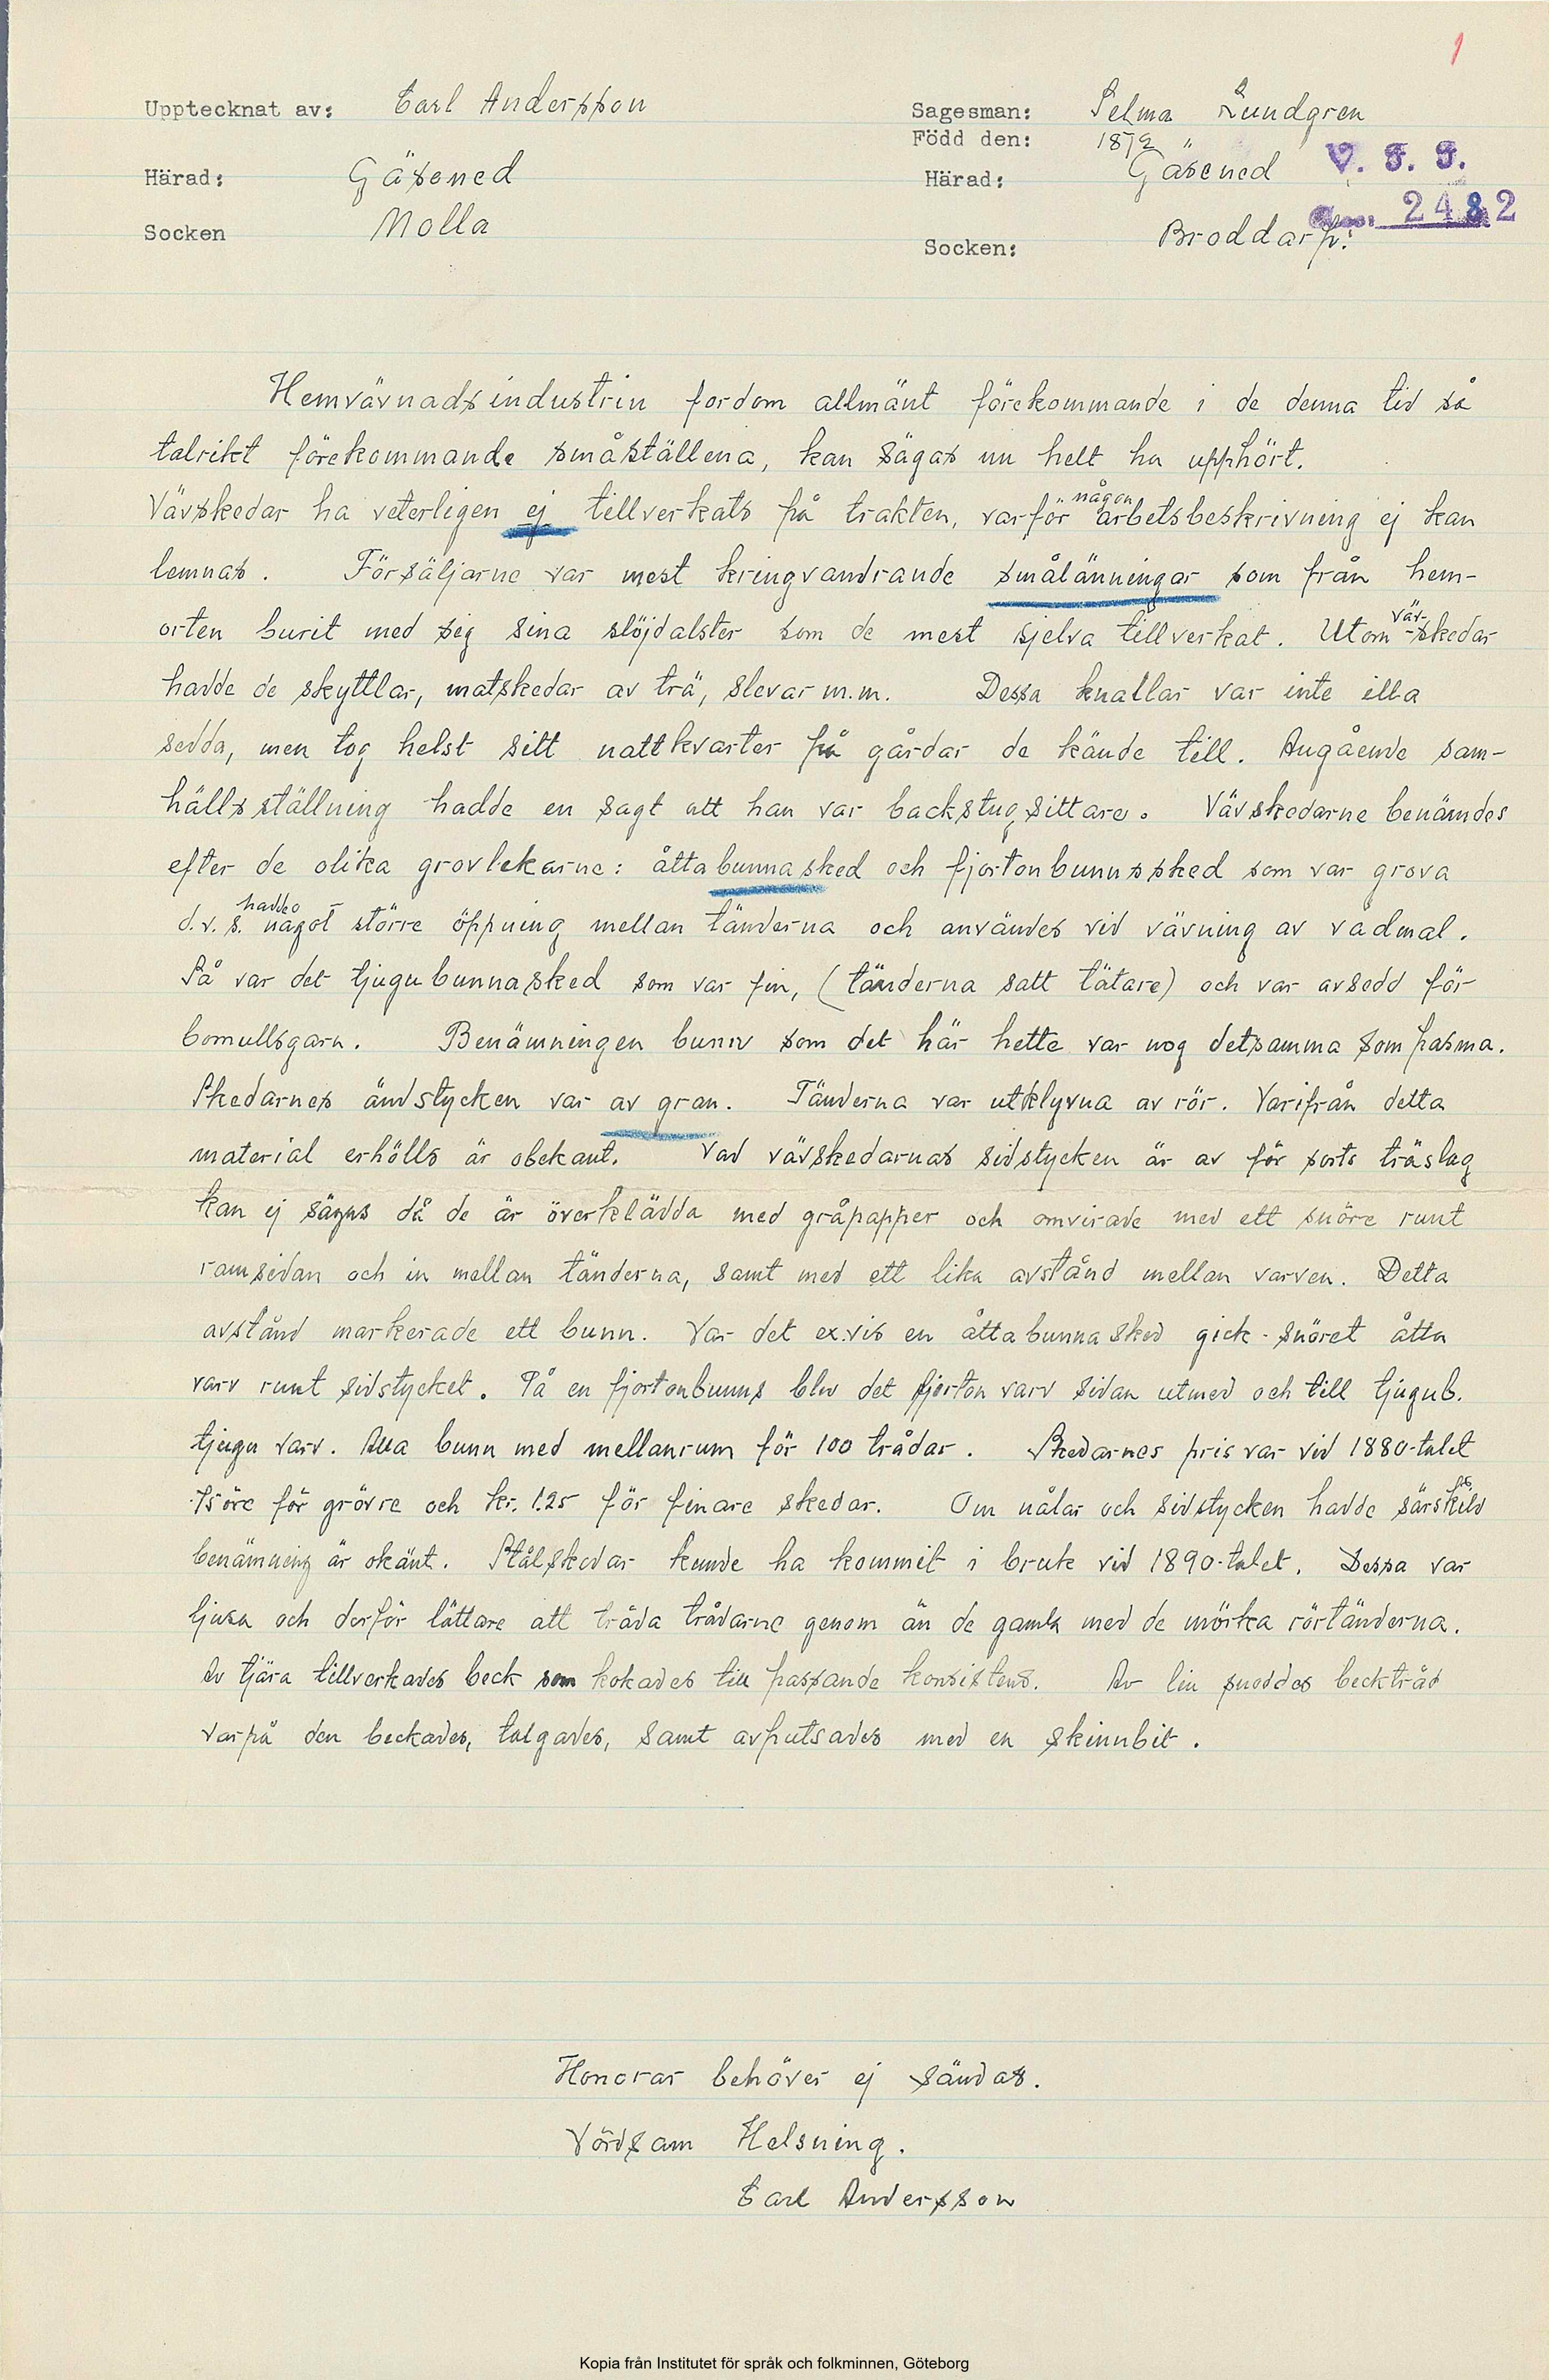 1
Upptecknat av: Carl Andersson
Sagesman: Selma Lundgren
Född den: 1872
Härad: Gäsened
Härad: Gäsened
V. F. F.
Socken Molla
2482
Socken: Broddarp.
Hemvävnadsindustrin fordom allmänt förekommande i de denna tid så
talrikt förekommande småställena, kan sägas nu helt ha upphört.
Vävskedar ha veterligen ej tillverkats på trakten, varför någon arbetsbeskrivning ej kan
lemnas. Försäljarne var mest kringvandrande smålänningar som från hem-
orten burit med sig sina slöjdalster som de mest sjelva tillverkat. Utom väv-skedar
hadde de skyttlar, matskedar av trä, slevar m.m. Dessa knallar var inte illa
sedda, men tog helst sitt nattkvarter på gårdar de kände till. Angående sam-
hällsställning hadde en sagt att han var backstugsittare. Vävskedarne benämdes
efter de olika grovlekarne: åttabunnasked och fjortonbunnssked som var grova
d.v.s. hadde något större öppning mellan tänderna och användes vid vävning av vadmal.
Så var det tjugubunnasked som var fin, (tänderna satt tätare) och var avsedd för
bomullsgarn. Benämningen bunn som det här hette var nog detsamma som pasma.
Skedarnes ändstycken var av gran. Tänderna var utklyvna av rör. Varifrån detta
material erhölls är obekant. Vad vävskedarnas sidstycken är av för sorts träslag
kan ej sägas då de är överklädda med gråpapper och omvirade med ett snöre runt
ramsidan och in mellan tänderna, samt med ett lika avstånd mellan varven. Detta
avstånd markerade ett bunn. Var det ex.vis en åttabunnasked gick snöret åtta
varv runt sidstycket. På en fjortonbunns blev det fjorton varv sidan utmed och till tjugub.
tjugu varv. Alla bunn med mellanrum för 100 trådar. Skedarnes pris var vid 1880-talet
75 öre för grövre och kr. 1.25 för finare skedar. Om nålar och sidstycken hadde särskild
benämning är okänt. Stålskedar kunde ha kommit i bruk vid 1890-talet. Dessa var
ljusa och derför lättare att träda trådarne genom än de gamla med de mörka rörtänderna.
Av tjära tillverkades beck som kokades till passande konsistens. Av lin snoddes becktråd
varpå den beckades, talgades, samt avputsades med en skinnbit.
Honorar behöver ej sändas.
Vördsam Helsning.
Carl Andersson
Kopia från Institutet för språk och folkminnen, Göteborg